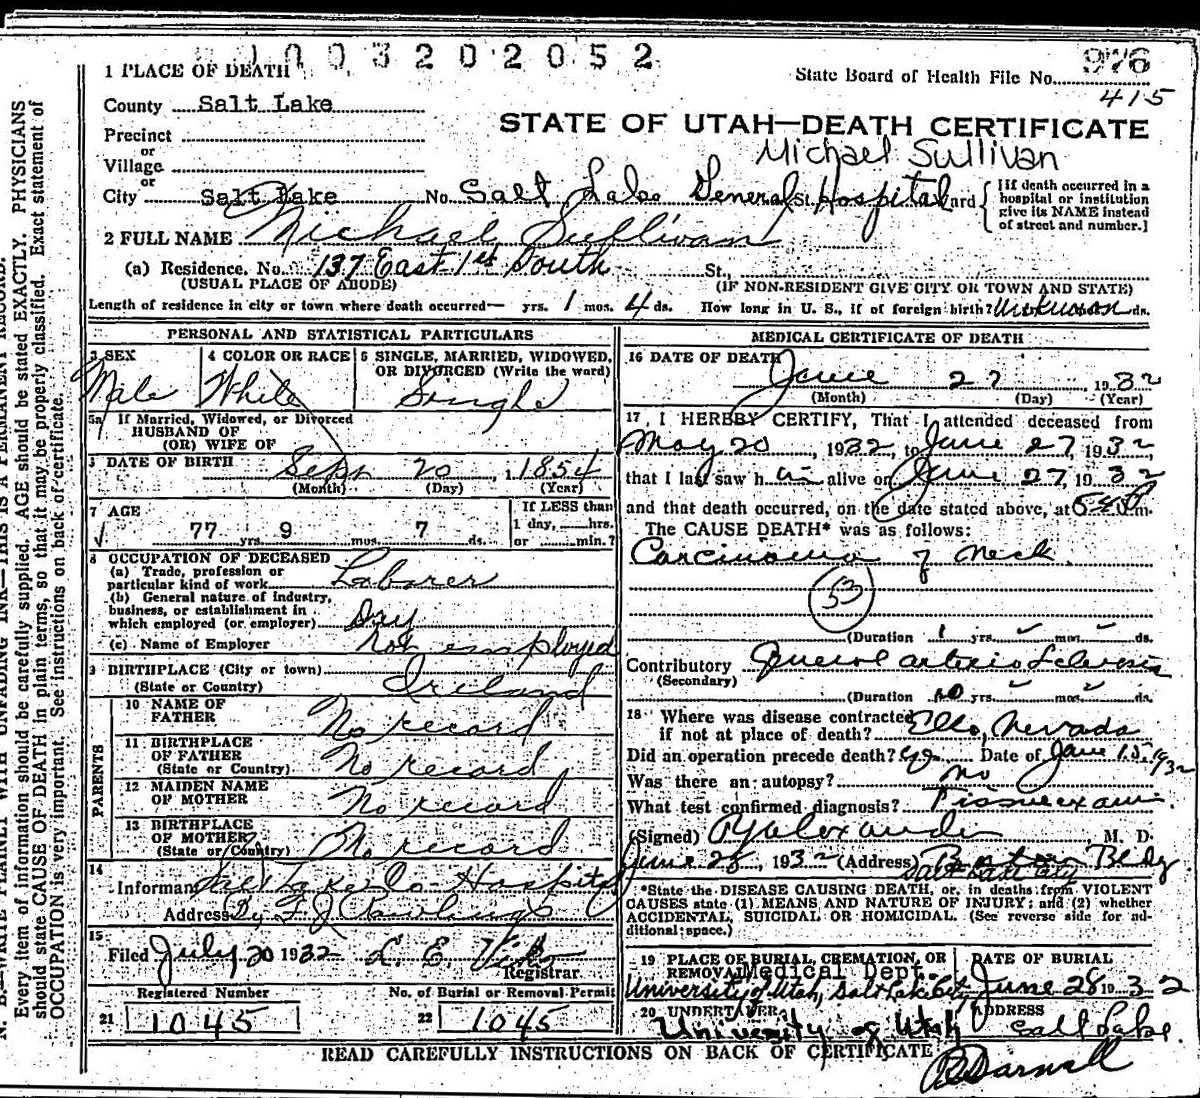 1003202052
1 PLACE OF DEATH
State Board of Health File No. 976
415
County Salt Lake
STATE OF UTAH—DEATH CERTIFICATE
Precinct
or
Village
Michael Sullivan
or
City Salt Lake No. Salt Lake General St. Hospital ard
[If death occurred in a hospital or institution give its NAME instead of street and number.]
2 FULL NAME Michael Sullivan
(a) Residence. No. 137 East 1st South St.,
(USUAL PLACE OF ABODE) (IF NON-RESIDENT GIVE CITY OR TOWN AND STATE)
Length of residence in city or town where death occurred— yrs. 1 mos. 4 ds. How long in U. S., if of foreign birth? Unknown ds.
PERSONAL AND STATISTICAL PARTICULARS
3 SEX 4 COLOR OR RACE 5 SINGLE, MARRIED, WIDOWED,
OR DIVORCED (Write the word)
Male White Single
5a If Married, Widowed, or Divorced
HUSBAND OF
(OR) WIFE OF
DATE OF BIRTH Sept 20, 1854
(Month) (Day) (Year)
7 AGE If LESS than
77 yrs. 9 mos. 7 ds. 1 day, hrs.
or min.?
8 OCCUPATION OF DECEASED
(a) Trade, profession or
particular kind of work Laborer
(b) General nature of industry,
business, or establishment in
which employed (or employer) Day
(c) Name of Employer not employed
9 BIRTHPLACE (City or town)
(State or Country) Ireland
PARENTS
10 NAME OF
FATHER No record
11 BIRTHPLACE
OF FATHER
(State or Country) No record
12 MAIDEN NAME
OF MOTHER No record
13 BIRTHPLACE
OF MOTHER
(State or Country) No record
14
Informant Salt Lake Co Hospital
Address By F J Rawlings
15
Filed July 20 1932 L. E. Registrar
Registered Number No. of Burial or Removal Permit
21 1045 22 1045
MEDICAL CERTIFICATE OF DEATH
16 DATE OF DEATH
June 27, 1932
(Month) (Day) (Year)
17 I HEREBY CERTIFY, That I attended deceased from
May 20, 1932, to June 27 1932,
that I last saw him alive on June 27 1932
and that death occurred, on the date stated above, at 540 P m.
The CAUSE DEATH* was as follows:
Carcinoma of neck
53
(Duration 1 yrs. mos. ds.
Contributory General arterio Sclerosis
(Secondary)
(Duration 10 yrs. mos. ds.
18 Where was disease contracted
if not at place of death? Elko, Nevada
Did an operation precede death? yes Date of June 15, 1932
Was there an autopsy? no
What test confirmed diagnosis? Tissue exam
(Signed) Alexander M. D.
June 28, 1932 (Address) Boston Bldg
Salt Lake City
*State the DISEASE CAUSING DEATH, or, in deaths from VIOLENT
CAUSES state (1) MEANS AND NATURE OF INJURY; and (2) whether
ACCIDENTAL, SUICIDAL OR HOMICIDAL. (See reverse side for ad-
ditional space.)
19 PLACE OF BURIAL, CREMATION, OR DATE OF BURIAL
REMOVAL Medical Dept.
University of Utah, Salt Lake City June 28 1932
20 UNDERTAKER ADDRESS
University of Utah Salt Lake.
READ CAREFULLY INSTRUCTIONS ON BACK OF CERTIFICATE
Darnell
N. B.—WRITE PLAINLY WITH UNFADING INK—THIS IS A PERMANENT RECORD.
Every item of information should be carefully supplied. AGE should be stated EXACTLY. PHYSICIANS
should state CAUSE OF DEATH in plain terms, so that it may be properly classified. Exact statement of
OCCUPATION is very important. See instructions on back of certificate.